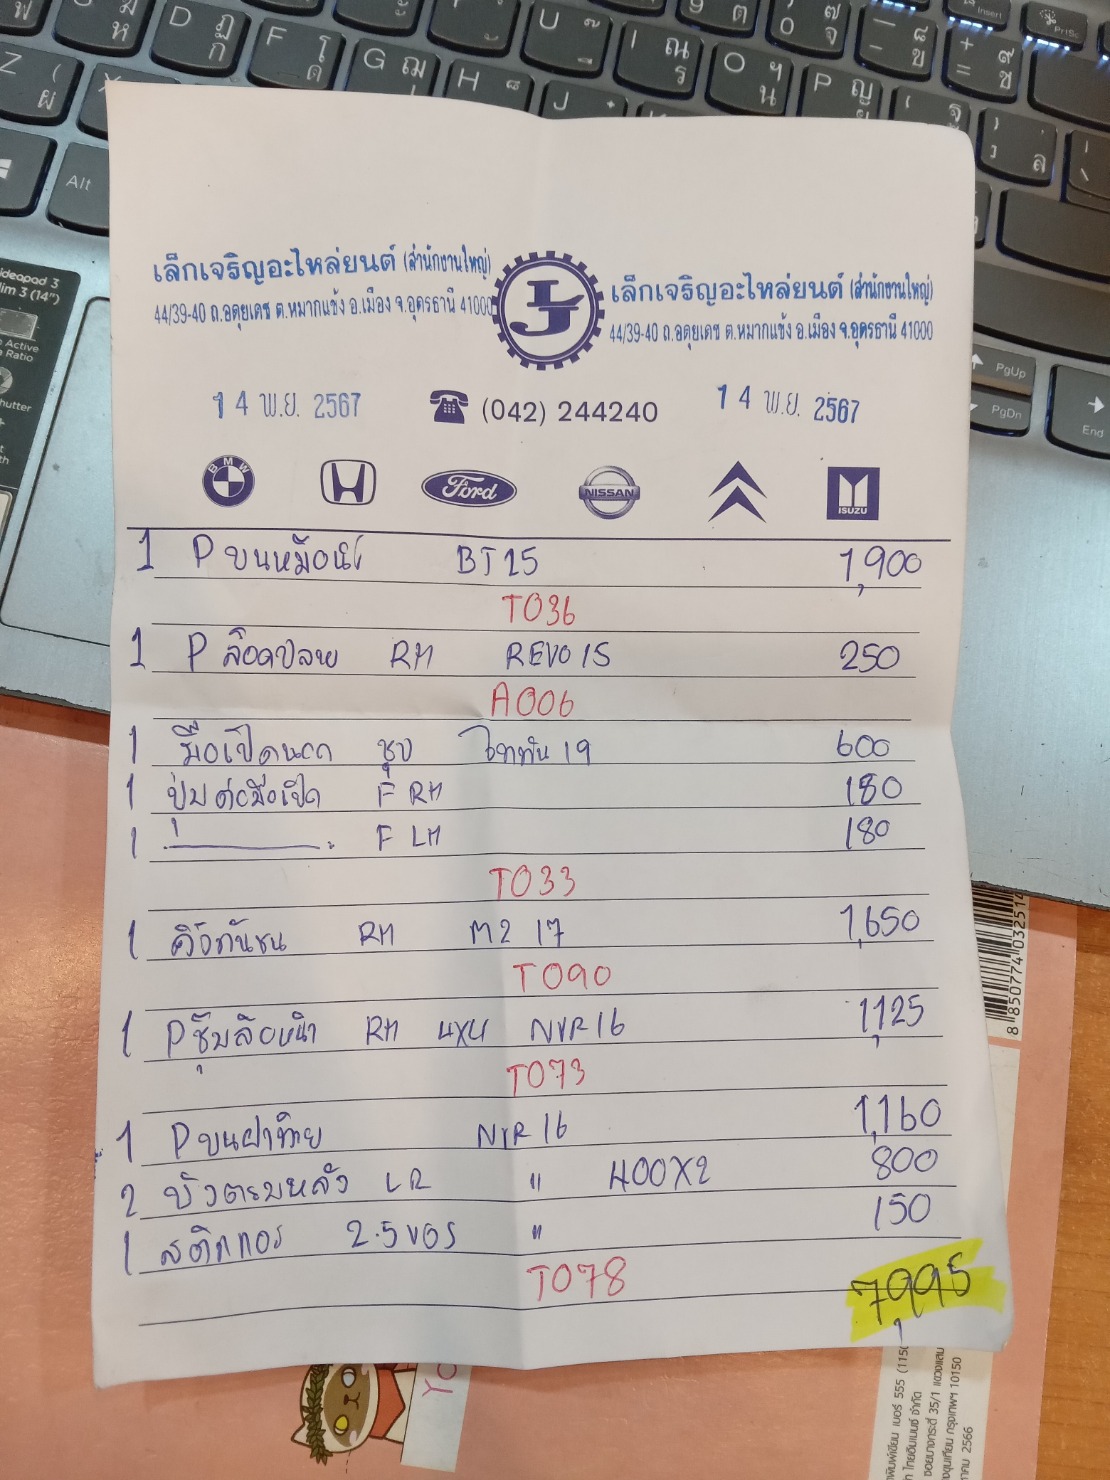 เล็กเจริญอะไหล่ยนต์ (สำนักงานใหญ่)
44/39-40 ถ.อดุยเดช ต.หมากแข้ง อ.เมือง จ.อุดรธานี 41000
LJ
เล็กเจริญอะไหล่ยนต์ (สำนักงานใหญ่)
44/39-40 ถ.อดุยเดช ต.หมากแข้ง อ.เมือง จ.อุดรธานี 41000
14 พ.ย. 2567
(042) 244240
14 พ.ย. 2567
BMW
Ford
NISSAN
ISUZU
1 P บนหม้อน้ำ BT25 1,900
T036
1 P ล๊อคปลาย RH REVO15 250
A006
1 มือเปิดนอก ชุบ ไททัน 19 600
1 ปุ่มต่อมือเปิด F RH 180
1 F LH 180
T033
1 คิ้วกันชน RH M2 17 1,650
T090
1 P ซุ้มล้อหน้า RH 4X4 NVR16 1,125
T073
1 P บนฝาท้าย NVR16 1,160
2 บังตะบหลัง LR " 400X2 800
1 สติกเกอร์ 2.5 VGS " 150
T078
7,995
ideapad 3
Alt
PgUp
PgDn
End
Insert
PrtSc
8 850774 03251